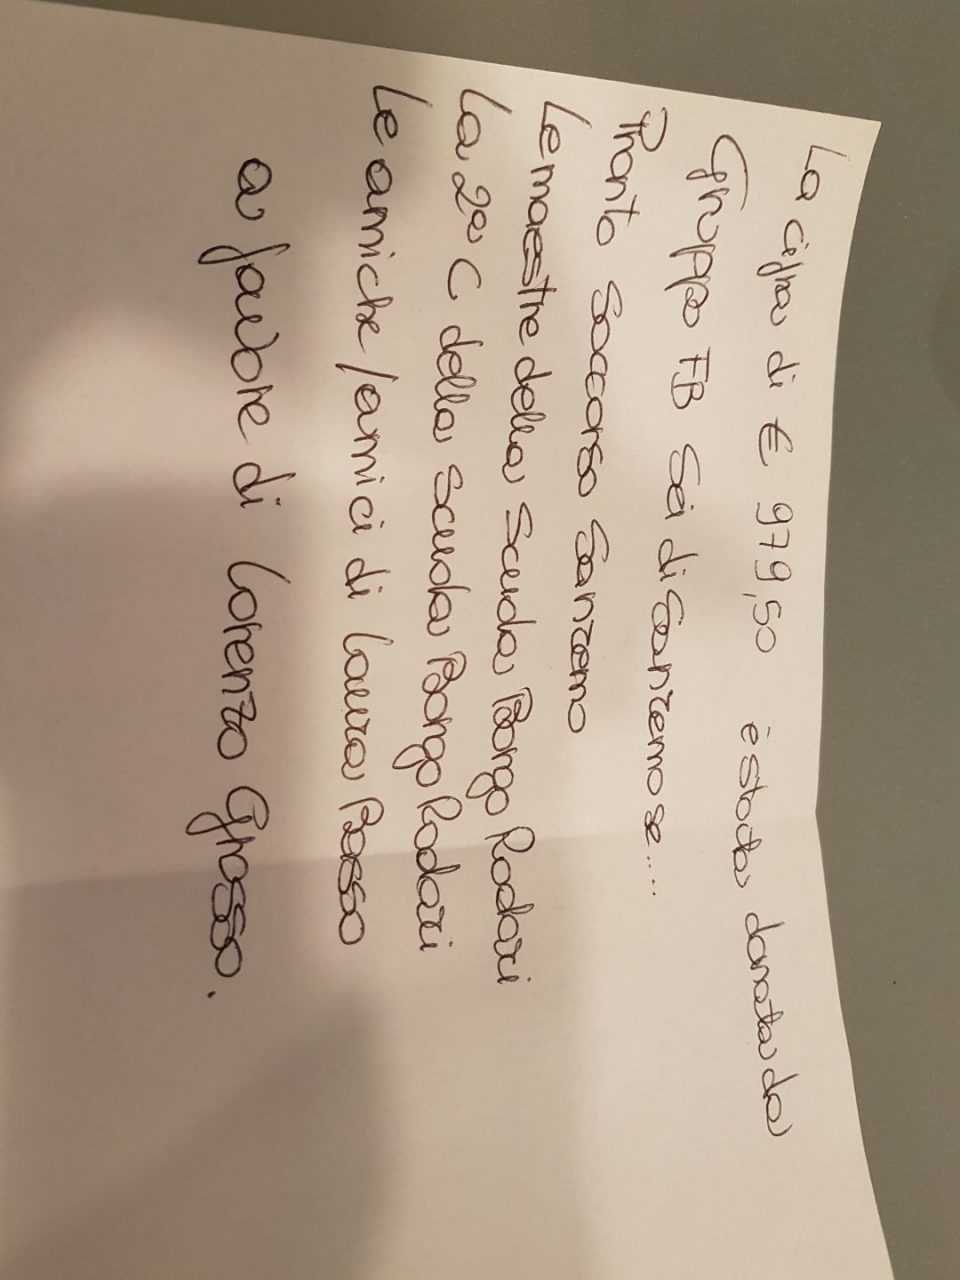 La cifra di € 979,50 è stata donata da
Gruppo FB Sei di Sanremo se....
Pronto Soccorso Sanremo
Le maestre della Scuola Borgo Rodari
La 2ª C della Scuola Borgo Rodari
Le amiche/amici di Laura Bosso
a favore di Lorenzo Grosso.